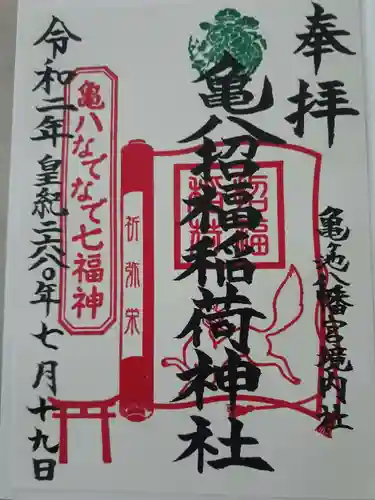 奉拝
亀池八幡宮境内社
亀八招福稲荷神社
招福
祈弥栄
亀八なでなで七福神
令和二年皇紀二六八〇年七月十九日